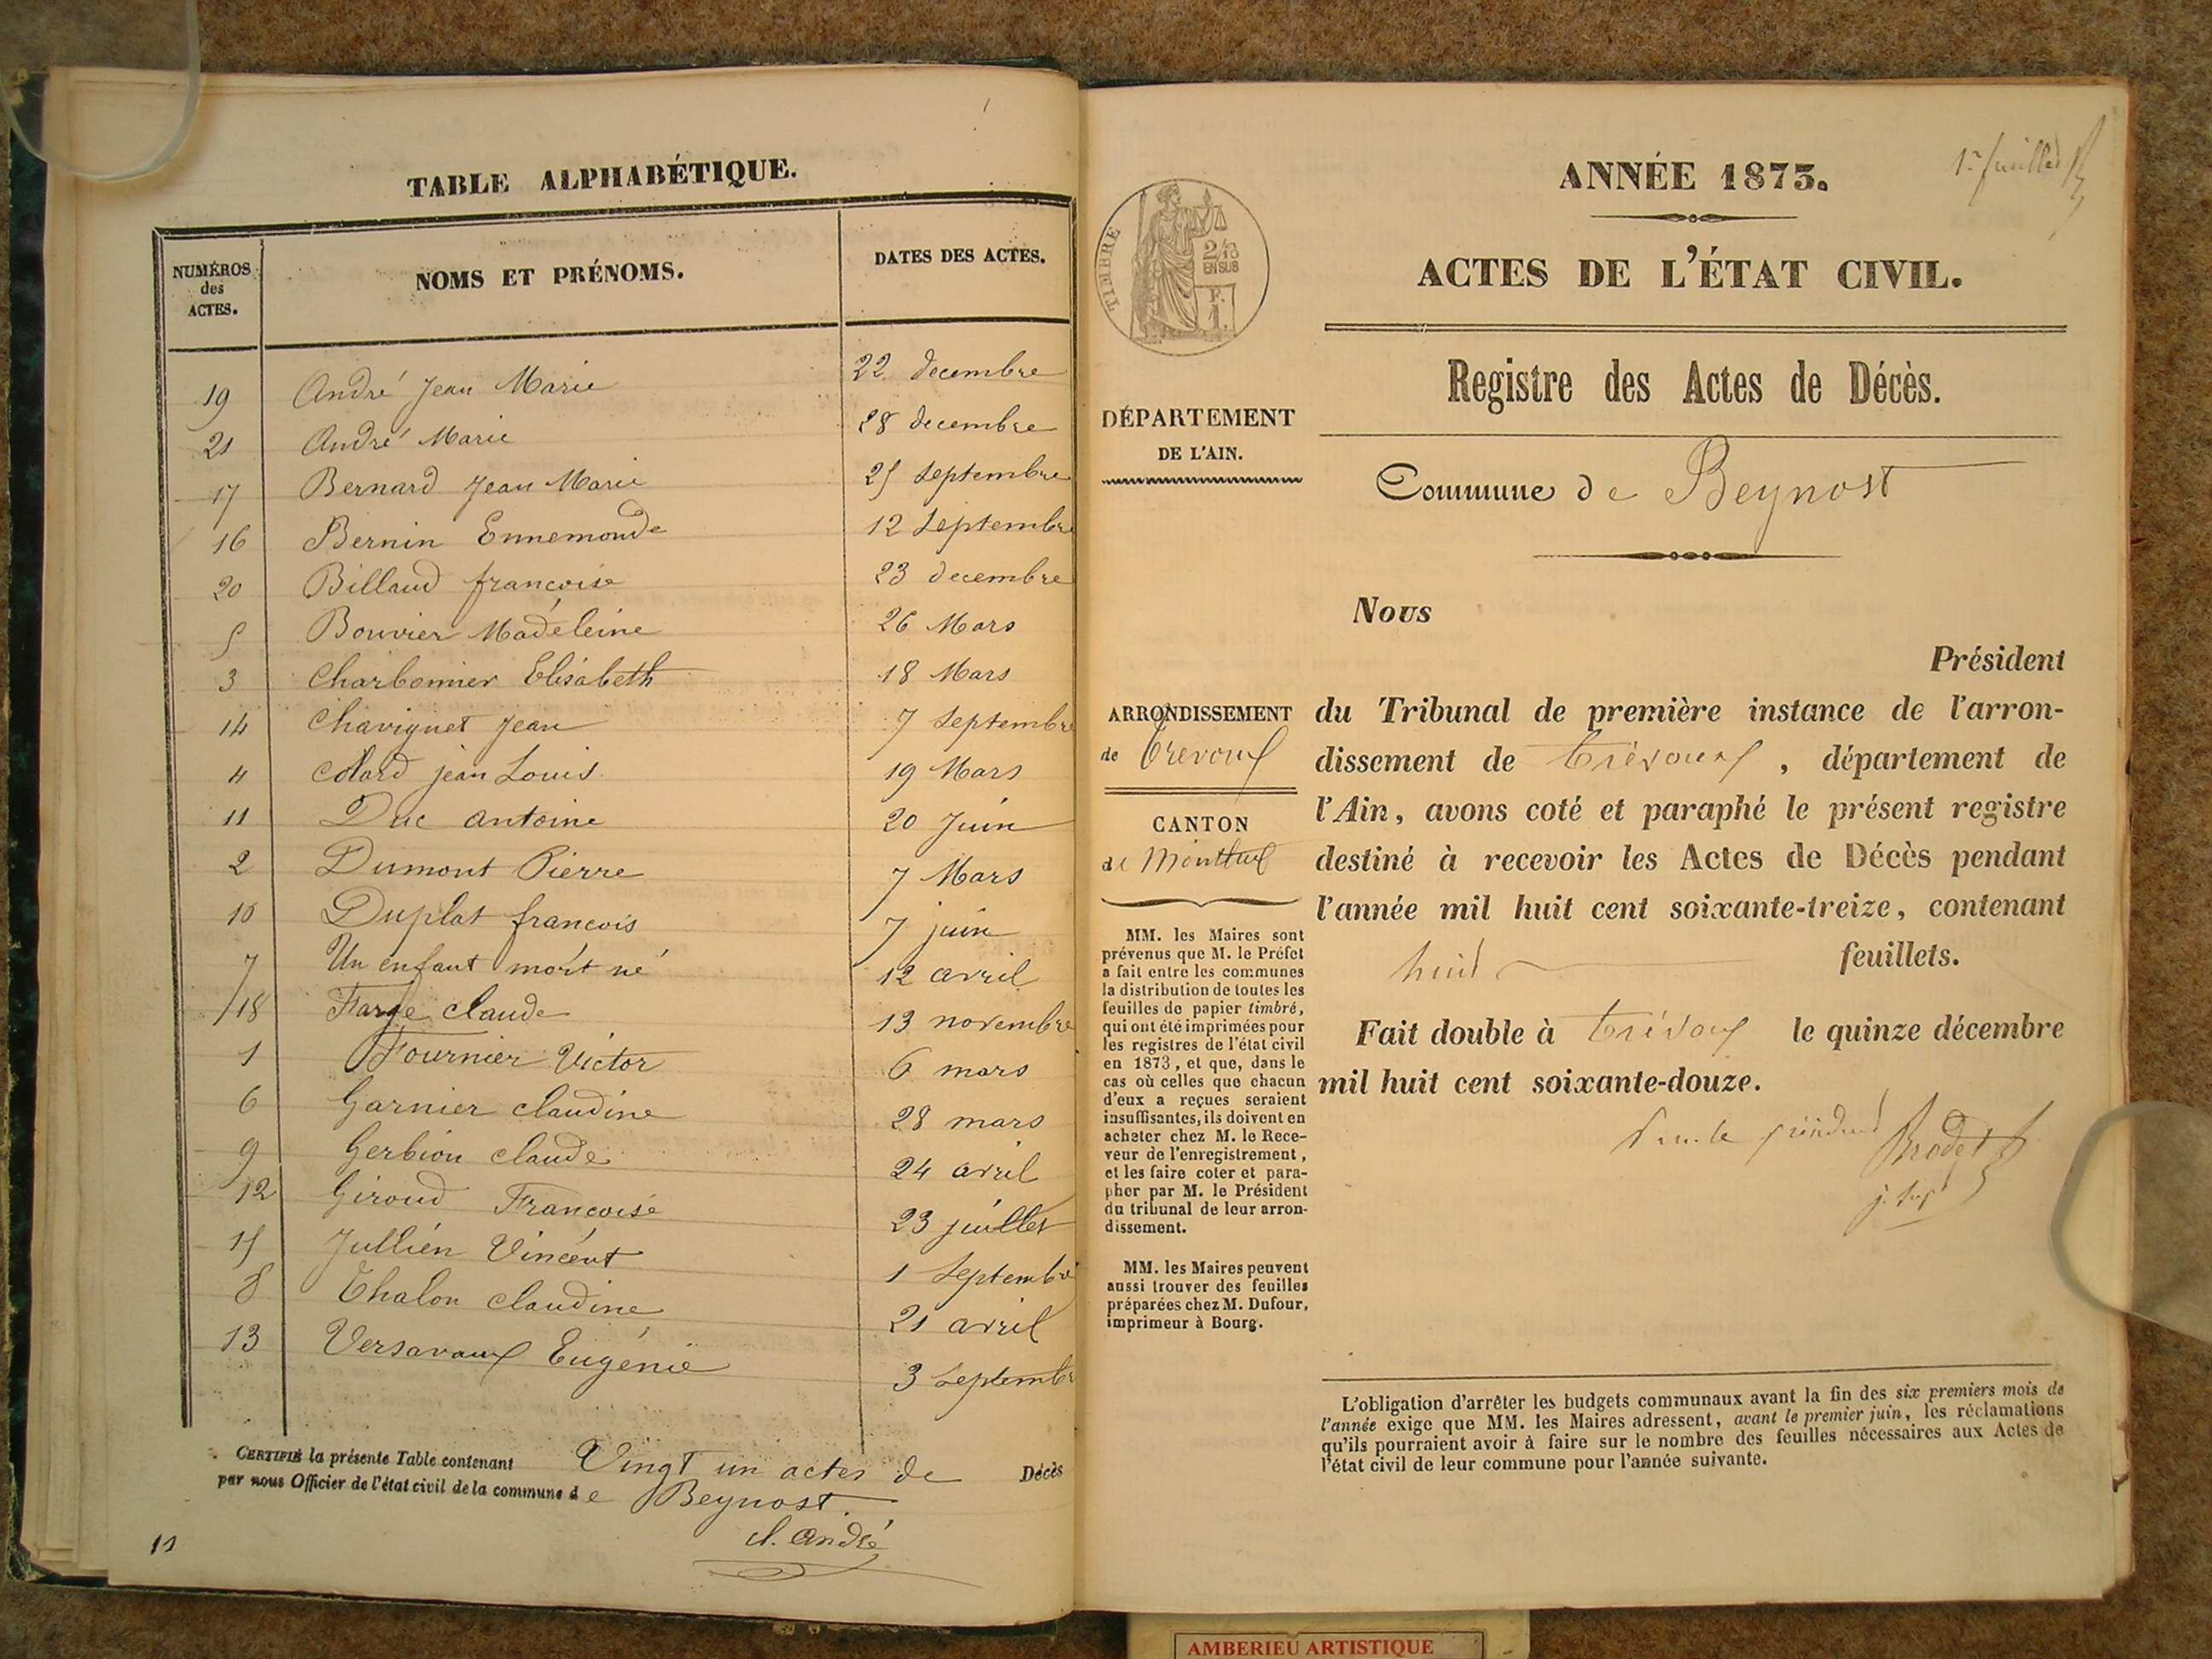 TABLE ALPHABÉTIQUE.
NUMÉROS des ACTES. NOMS ET PRÉNOMS. DATES DES ACTES.
19 André Jean Marie 22 decembre
21 André Marie 28 decembre
17 Bernard Jean Marie 25 Septembre
16 Bernin Ennemonde 12 Septembre
20 Billaud francoise 23 decembre
5 Bouvier Madéleine 26 Mars
3 Charbonnier Elisabeth 18 Mars
14 Chavignet Jean 7 Septembre
4 Colard jean Louis 19 Mars
11 Duc antoine 20 Juin
2 Dumont Pierre 7 Mars
10 Duplat francois 7 juin
7 Un enfant mort né 12 avril
18 Farge claude 13 novembre
1 Fournier Victor 6 mars
6 Garnier claudine 28 mars
9 Gerbion claude 24 avril
12 Giroud Francoise 23 juillet
15 Jullien Vincent 1 Septembre
8 Thalon claudine 21 avril
13 Versavaux Eugénie 3 Septembre
CERTIFIÉ la présente Table contenant Vingt un actes de Décès
par nous Officier de l'état civil de la commune de Beynost.
cl. andré
11
TIMBRE
2/10
EN SUS
F.
1.
DÉPARTEMENT
DE L'AIN.
ARRONDISSEMENT
de Trevoux
CANTON
de Montluel
MM. les Maires sont
prévenus que M. le Préfet
a fait entre les communes
la distribution de toutes les
feuilles de papier timbré,
qui ont été imprimées pour
les registres de l'état civil
en 1873, et que, dans le
cas où celles que chacun
d'eux a reçues seraient
insuffisantes, ils doivent en
acheter chez M. le Rece-
veur de l'enregistrement,
et les faire coter et para-
pher par M. le Président
du tribunal de leur arron-
dissement.
MM. les Maires peuvent
aussi trouver des feuilles
préparées chez M. Dufour,
imprimeur à Bourg.
1er feuillet
ANNÉE 1873.
ACTES DE L'ÉTAT CIVIL.
Registre des Actes de Décès.
Commune de Beynost
Nous
Président
du Tribunal de première instance de l'arron-
dissement de trévoux, département de
l'Ain, avons coté et paraphé le présent registre
destiné à recevoir les Actes de Décès pendant
l'année mil huit cent soixante-treize, contenant
huit feuillets.
Fait double à trévoux le quinze décembre
mil huit cent soixante-douze.
L'obligation d'arrêter les budgets communaux avant la fin des six premiers mois de
l'année exige que MM. les Maires adressent, avant le premier juin, les réclamations
qu'ils pourraient avoir à faire sur le nombre des feuilles nécessaires aux Actes de
l'état civil de leur commune pour l'année suivante.
AMBERIEU ARTISTIQUE